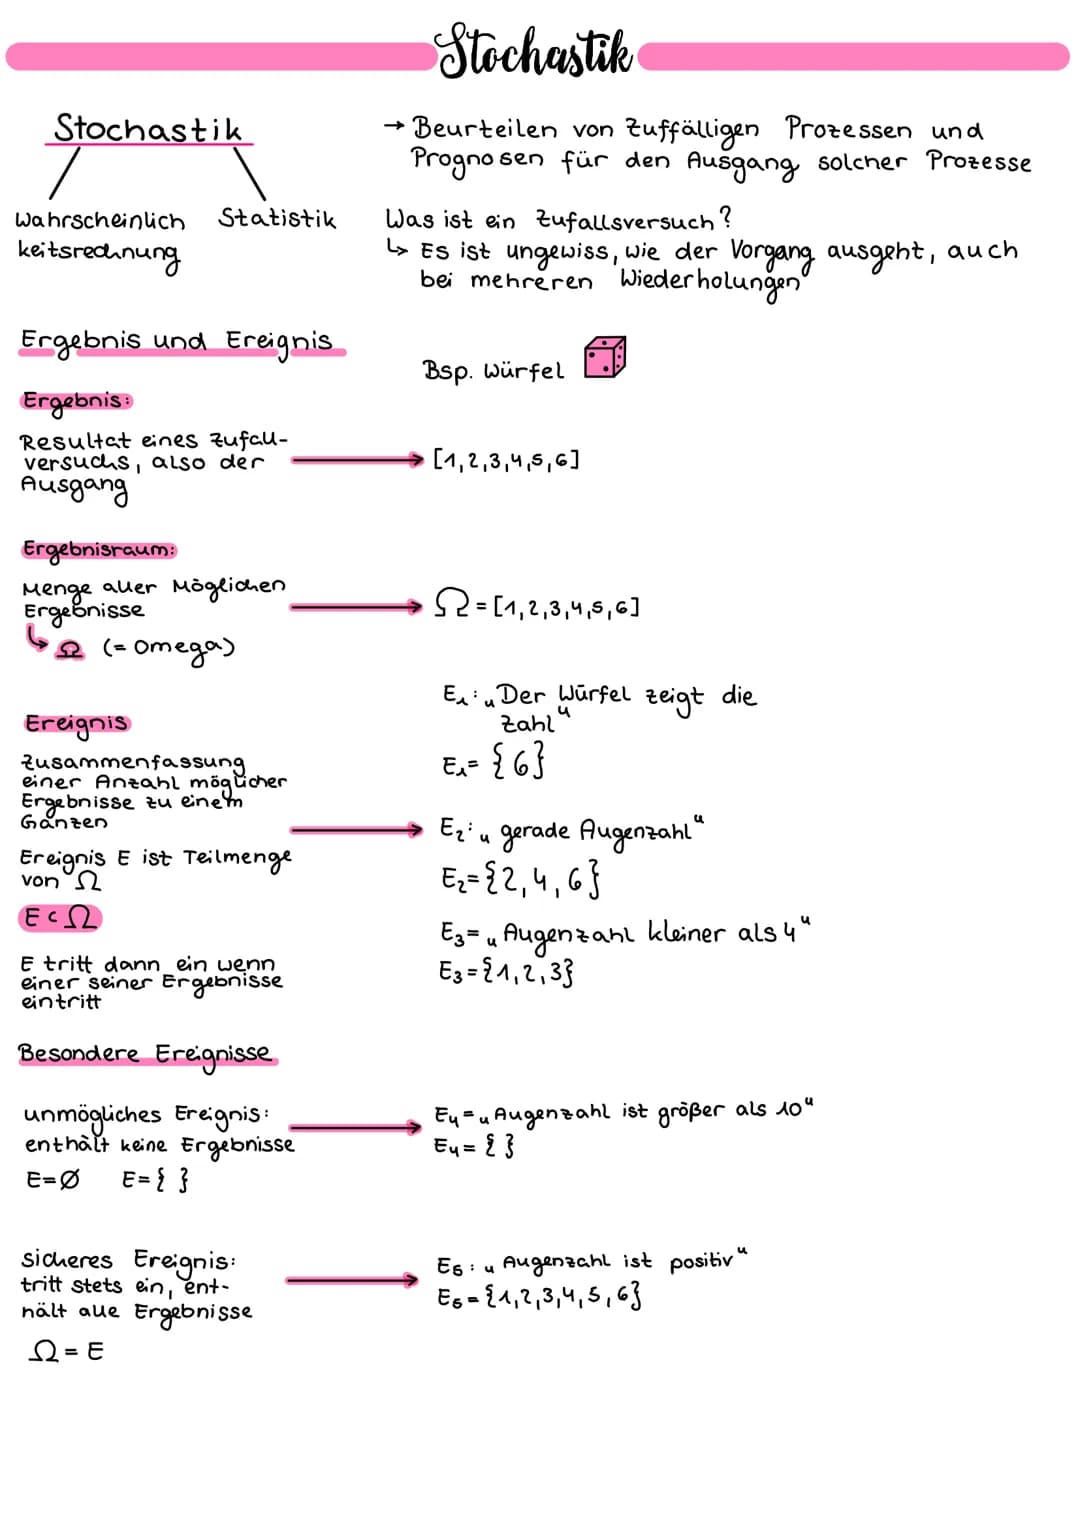 Stochastik
Stochastik
Wahrscheinlich
keitsrechnung
Statistik
→ Beurteilen von Zuffälligen Prozessen und
Prognosen für den Ausgang solcher Prozesse
Was ist ein Zufallsversuch?
↳ Es ist ungewiss, wie der Vorgang ausgeht, auch
bei mehreren Wiederholungen
Ergebnis und Ereignis
Bsp. Würfel
Ergebnis:
Resultat eines Zufall-
versuchs, also der
Ausgang
[1,2,3,4,5,6]
Ergebnisraum:
Menge aller Möglichen
Ergebnisse
↳ Ω (= Omega)
Ω = [1,2,3,4,5,6]
Ereignis
Zusammenfassung
einer Anzahl möglicher
Ergebnisse zu einem
Ganzen
Ereignis E ist Teilmenge
von Ω
E ⊂ Ω
E tritt dann ein wenn
einer seiner Ergebnisse
eintritt
E₁: „Der Würfel zeigt die
Zahl“
E₁= {6}
E₂: „gerade Augenzahl“
E₂={2,4,6}
E₃= „Augenzahl kleiner als 4“
E₃={1,2,3}
Besondere Ereignisse
unmögliches Ereignis:
enthält keine Ergebnisse
E=∅ E={ }
E₄= „Augenzahl ist größer als 10“
E₄= { }
sicheres Ereignis:
tritt stets ein, ent-
hält alle Ergebnisse
Ω = E
E₅: „Augenzahl ist positiv“
E₅={1,2,3,4,5,6}